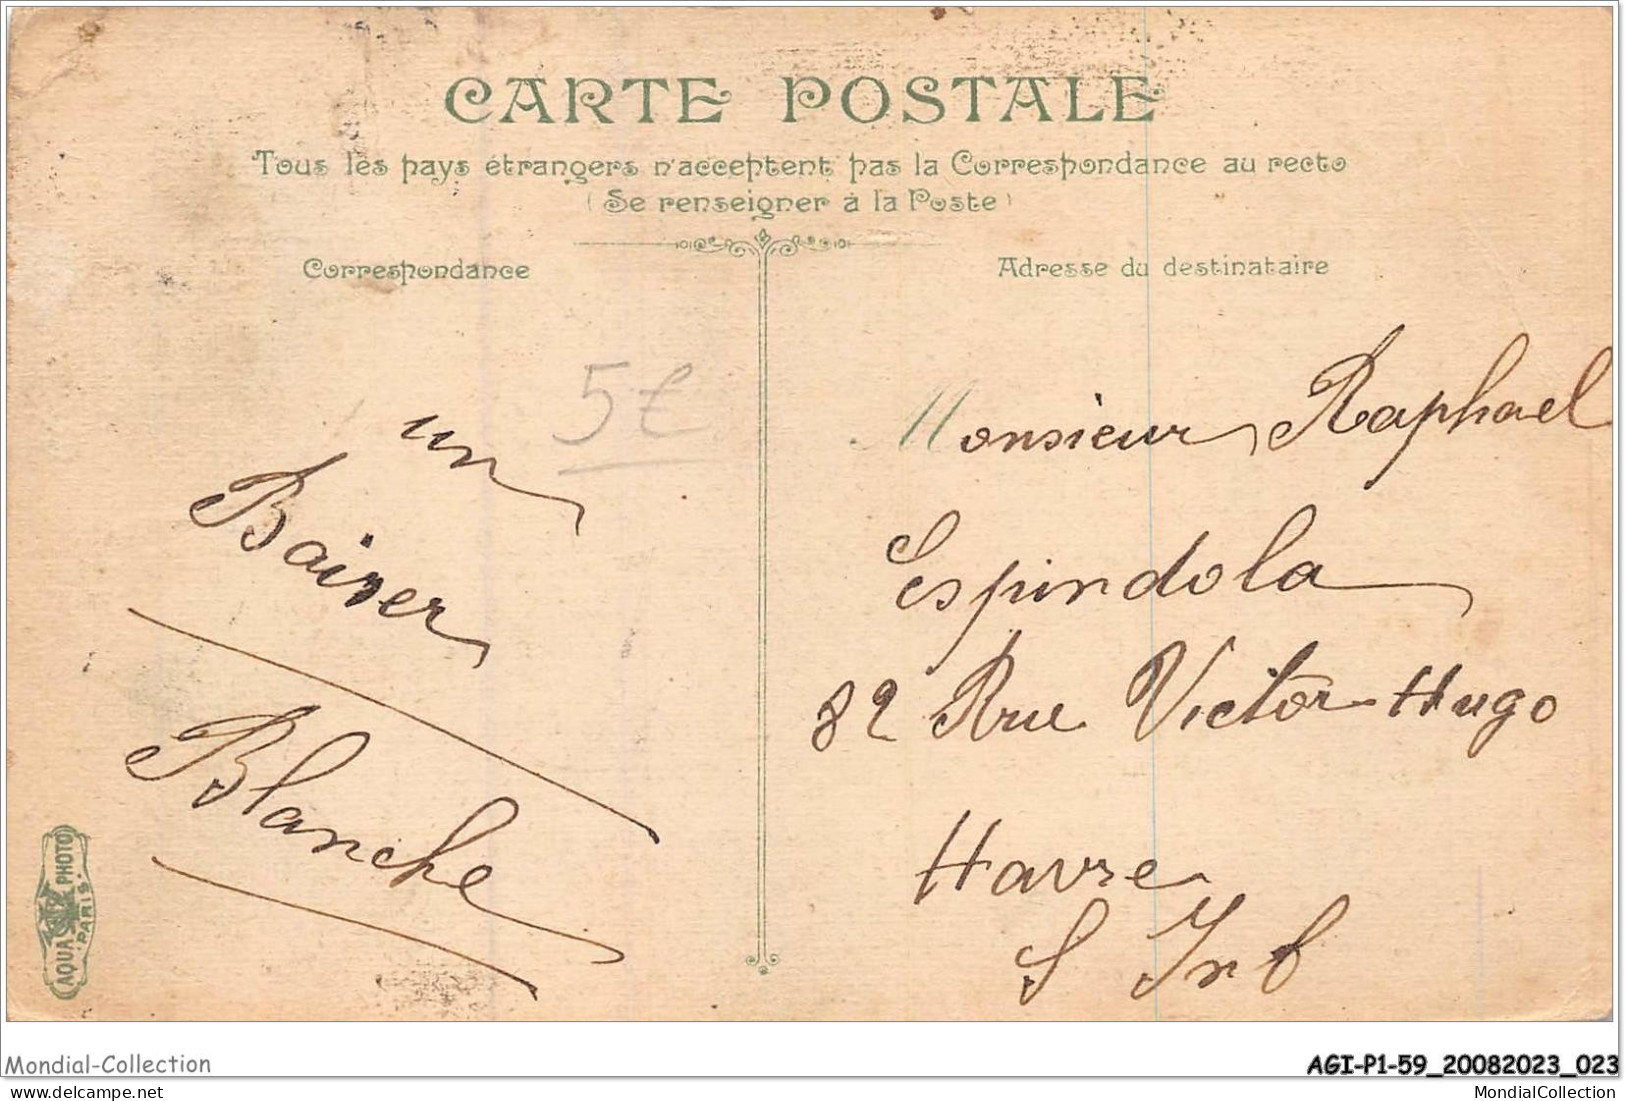 CARTE POSTALE
Tous les pays étrangers n'acceptent pas la Correspondance au recto
(Se renseigner à la Poste)
Correspondance
Adresse du destinataire
5€
un
Baiser
Blanche
Monsieur Raphael
Espindola
82 Rue Victor-Hugo
Havre
S Inf
AQUA PHOTO
PARIS
Mondial-Collection
AGI-P1-59_20082023_023
MondialCollection